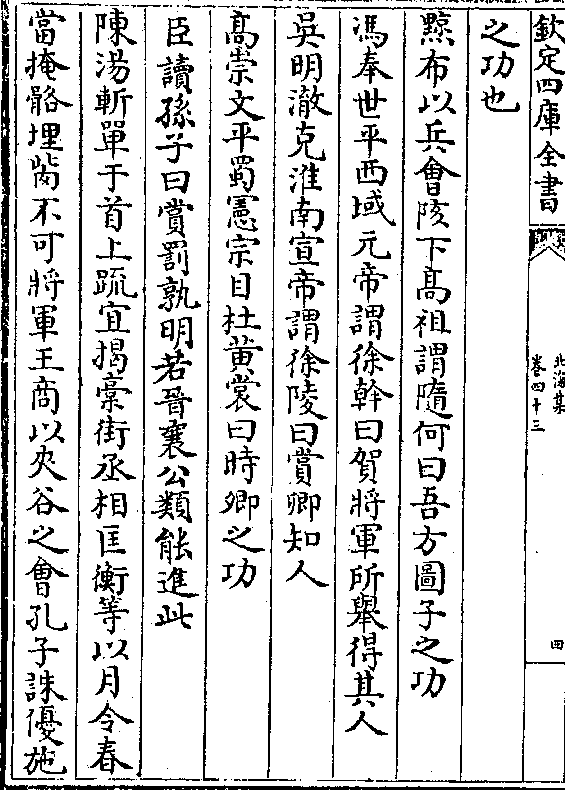 欽定四庫全書
北海集
卷四十三
四
之功也
黥布以兵會陔下高祖謂隨何曰吾方圖子之功
馮奉世平西域元帝謂徐幹曰賀將軍所舉得其人
吳明澈克淮南宣帝謂徐陵曰賞卿知人
高崇文平蜀憲宗目杜黄裳曰時卿之功
臣讀孫子曰賞罰孰明若晉襄公類能進此
陳湯斬單于首上䟽宜揭槀街丞相匡衡等以月令春
當掩骼埋胔不可將軍王商以夾谷之會孔子誅優施